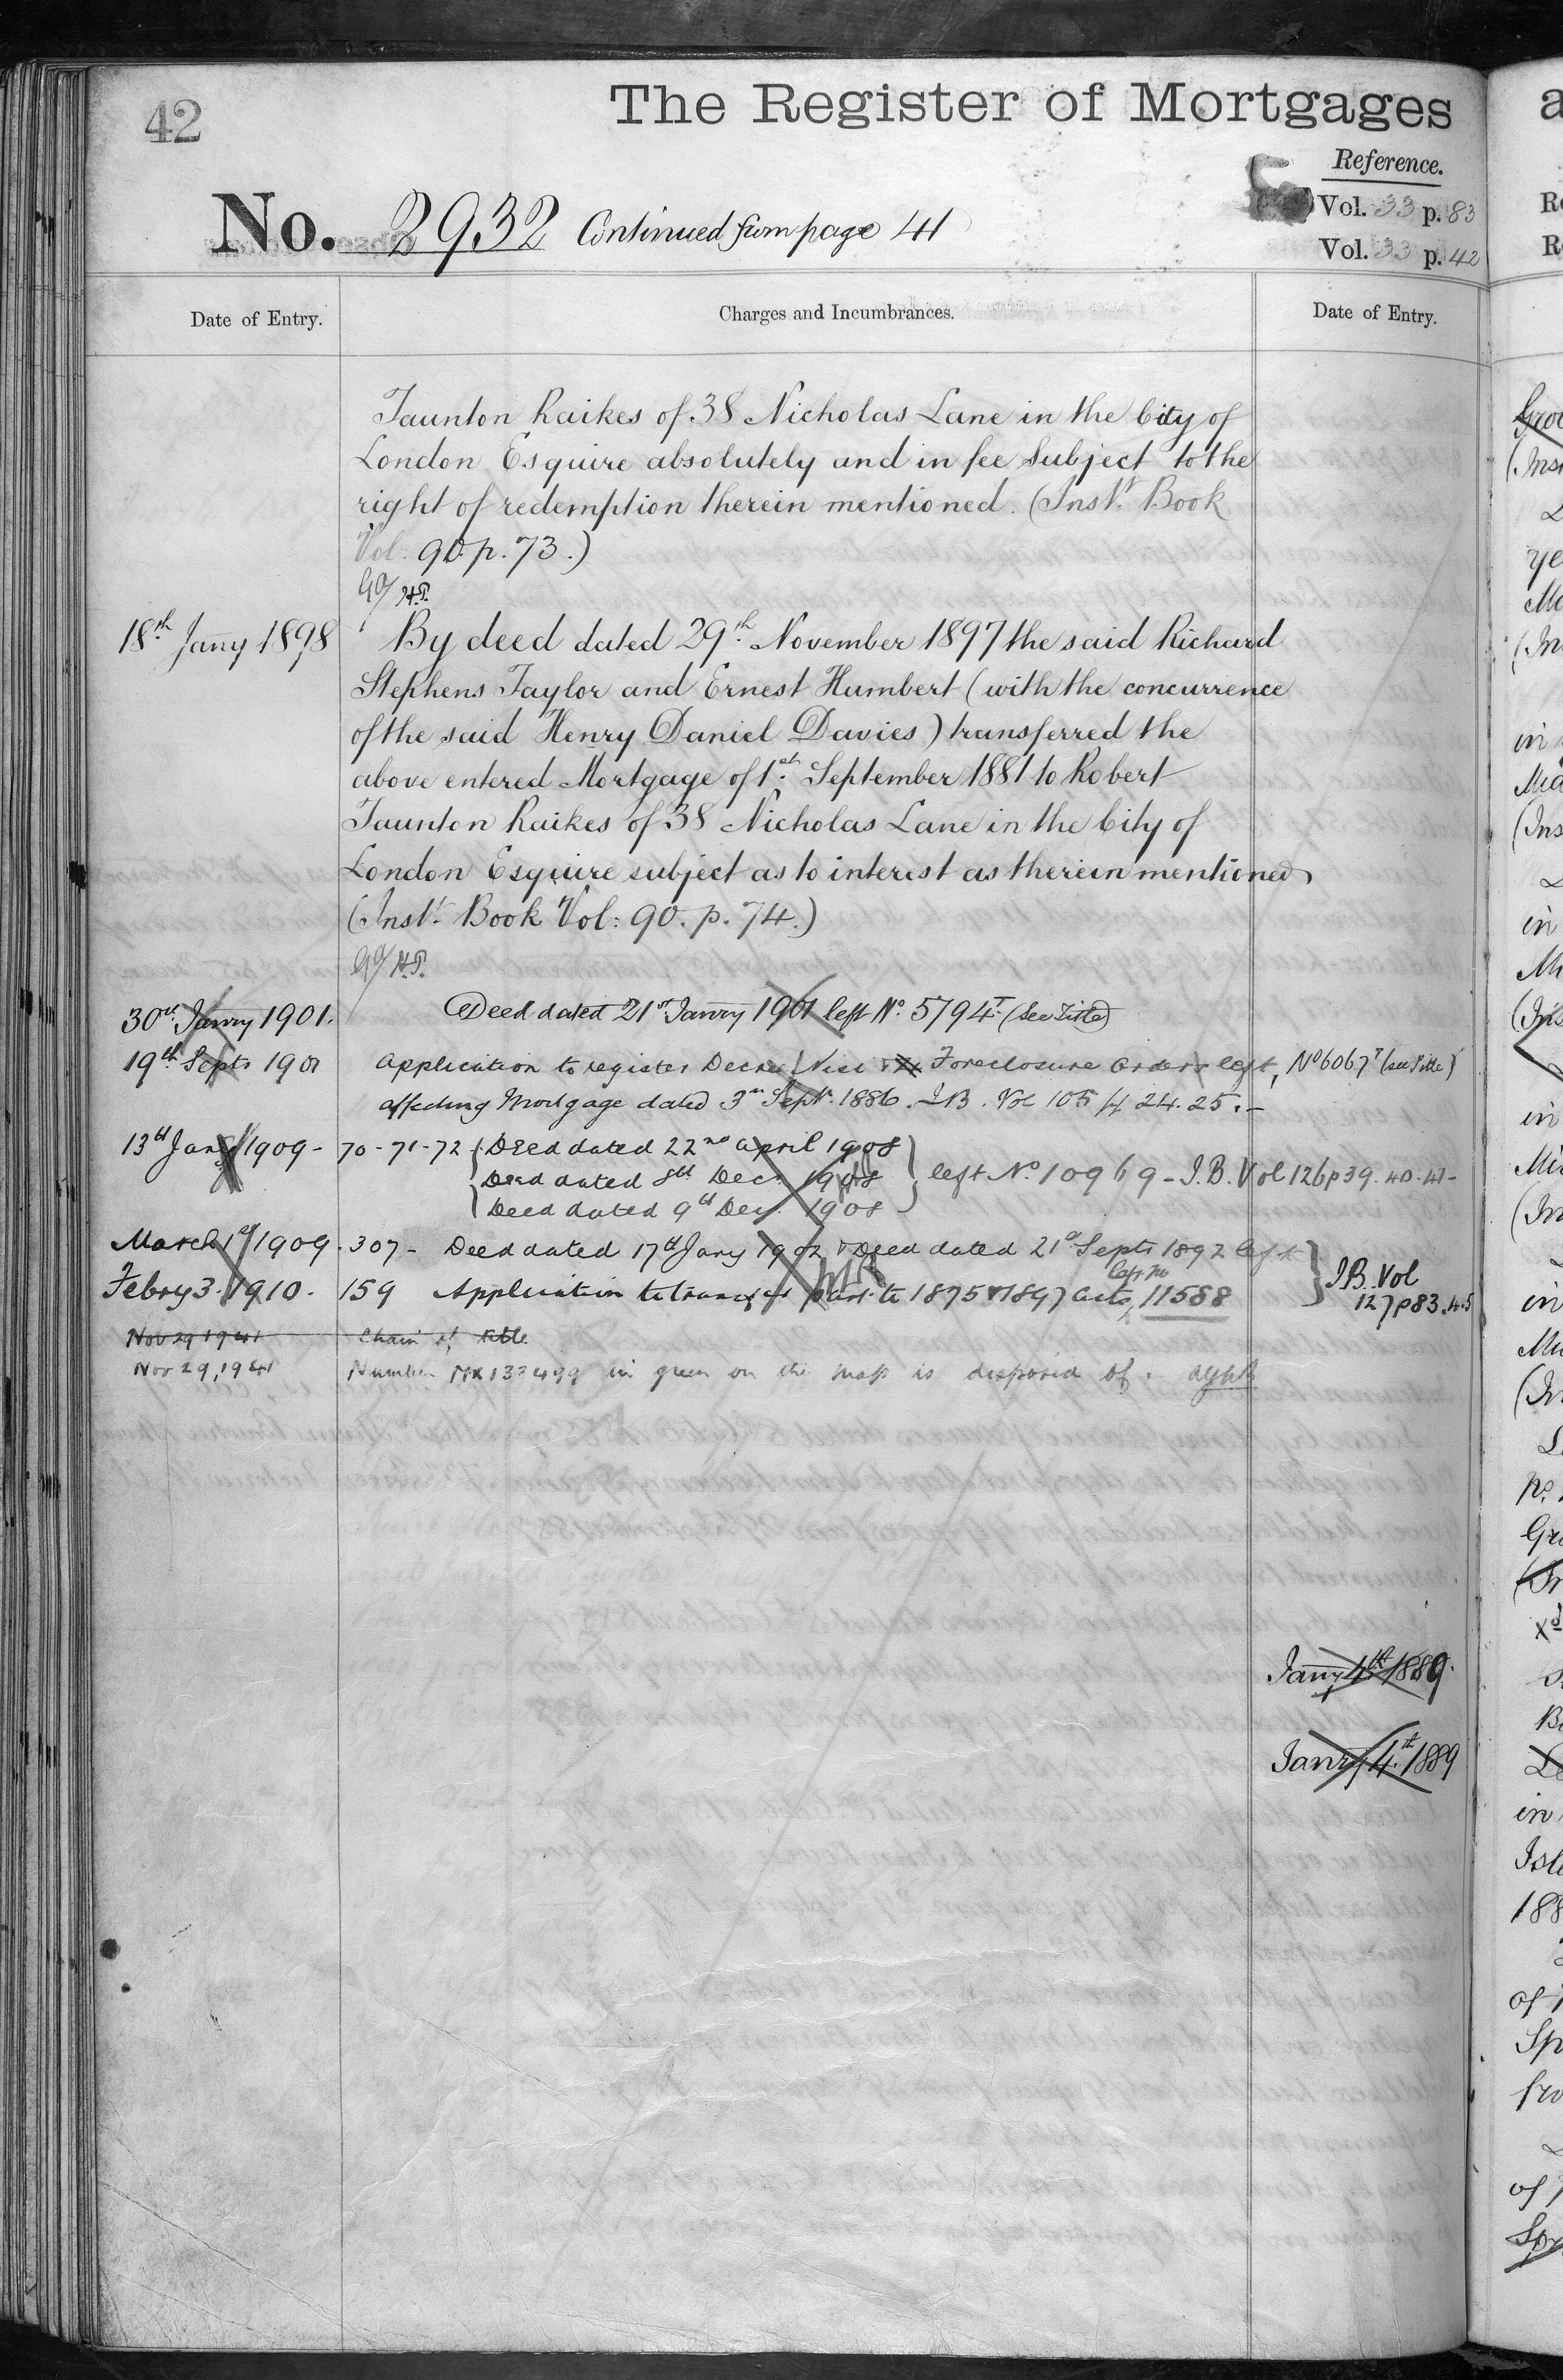 42
The Register of Mortgages
Reference.
No. 2932 Continued from page 41
Vol. 33 p. 83
Vol. 33 p. 42
Date of Entry.
Charges and Incumbrances.
Date of Entry.
Taunton Raikes of 38 Nicholas Lane in the City of
London Esquire absolutely and in fee subject to the
right of redemption therein mentioned. (Inst. Book
Vol. 90. p. 73.)
18th Jany 1898 By deed dated 29th November 1897 the said Richard
Stephens Taylor and Ernest Humbert (with the concurrence
of the said Henry Daniel Davies) transferred the
above entered Mortgage of 1st September 1881 to Robert
Taunton Raikes of 38 Nicholas Lane in the City of
London Esquire subject as to interest as therein mentioned
(Inst. Book Vol: 90. p. 74.)
30th Janry 1901. Deed dated 21st Janry 1901 left No. 5794T (see Title)
19th Septr 1901 Application to register Decree Nisi Foreclosure Order left, No 6067T (see Title)
affecting Mortgage dated 3rd Septr. 1886. I.B. Vol 105 24.25.
13th Jany 1909 - 70-71-72 {Deed dated 22nd April 1908
Deed dated 8th Decr 1908} left No. 10969 - I.B. Vol 126 p 39.40.41-
Deed dated 9th Decr 1908
March 1st 1909. 307- Deed dated 17th Jany 1902 & Deed dated 21st Septr 1892 left
Febry 3. 1910. 159 Application to transfer part to 1875 & 1897 Acts left no 11588
I.B. Vol
127 p 83.4.5
Nov 29 1941 Chain of title
Nov 29, 1941 Number MX 132499 in green on the map is disposed of.
Jany 4th 1889.
Janry 4th 1889